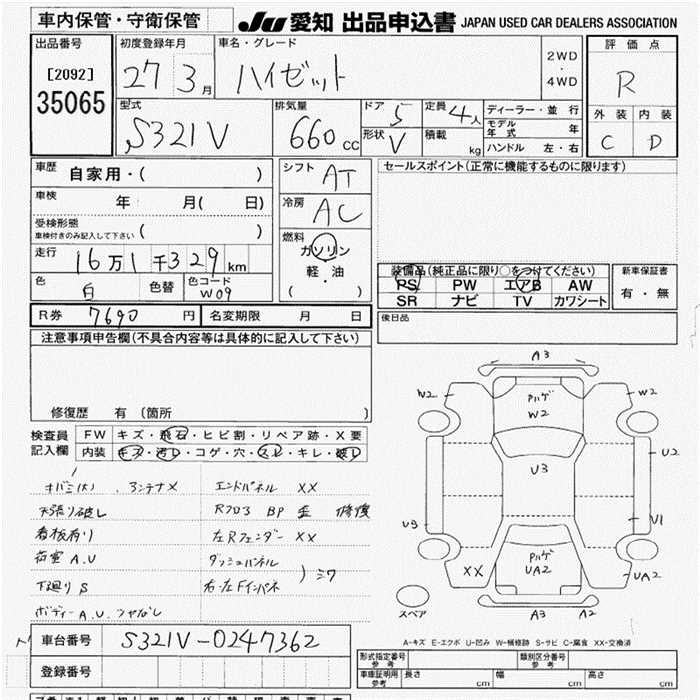 車内保管・守衛保管 JU 愛知 出品申込書 JAPAN USED CAR DEALERS ASSOCIATION
出品番号 [2092] 35065
初度登録年月 27 3月
車名・グレード ハイゼット
2WD ・ 4WD
評価点 R
外装 C 内装 D
型式 S321V
排気量 660 cc
ドア 5
形状 V
定員 4人
積載 kg
ディーラー・並行
モデル年式 年
ハンドル 左・右
車歴 自家用・( )
車検 年 月( 日)
受検形態 車検付きのみ記入して下さい ( )
走行 16万1千329km
色 白 色替 色コード W09
シフト AT
冷房 AC
燃料 ガソリン 軽・油 ( )
セールスポイント(正常に機能するものに限ります)
装備品(純正品に限り○をつけてください)
PS PW エアB AW
SR ナビ TV カワシート
新車保証書 有・無
R券 7690円 名変期限 月 日
後日品
注意事項申告欄(不具合内容等は具体的に記入して下さい)
修復歴 有 〔箇所 〕
検査員記入欄
FW キズ・飛石・ヒビ割・リペア跡・X要
内装 キズ・汚レ・コゲ・穴・スレ・キレ・破レ
アンテナX エンドパネル XX
天張り破し Rフロア BP 歪 修復
看板有り 左Rフェンダー XX
荷室 A.U ダッシュパネル
下廻り S 右・左Fインパネ
ボディー A.U.
A3
W2 W2
W2
U2
U3
U1
UA2
XX UA2
A3 A2
スペア
A-キズ E-エクボ U-凹み W-補修跡 S-サビ C-腐食 XX-交換済
車台番号 S321V-0247362
登録番号
形式指定番号 参考 類別区分番号 参考
車庫証明用 参考 長さ cm 幅 cm 高さ cm